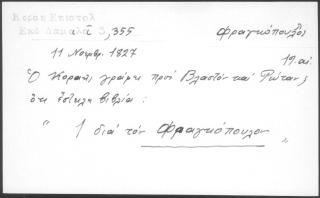 Κοραη Επιστολ
Εκδ Δαμαλα 3, 355
Φραγκόπουλος
11 Νοεμβρ. 1827
19. αι.
Ὁ Κοραῆς γράφει πρὸς Βλαστὸν καὶ Ρώταν
ὅτι ἔστειλε βιβλία :
" 1 διά τόν Φραγκόπουλον "